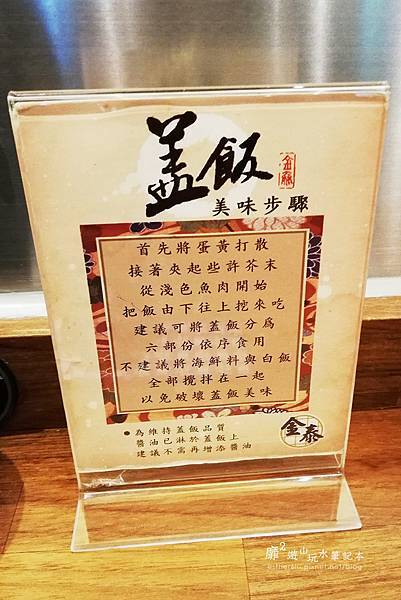 蓋飯
金泰
美味步驟
首先將蛋黃打散
接著夾起些許芥末
從淺色魚肉開始
把飯由下往上挖來吃
建議可將蓋飯分為
六部份依序食用
不建議將海鮮料與白飯
全部攪拌在一起
以免破壞蓋飯美味
●為維持蓋飯品質
醬油已淋於蓋飯上
建議不需再增添醬油
金泰
靡2遊山玩水筆記本
estherchi.pixnet.net/blog